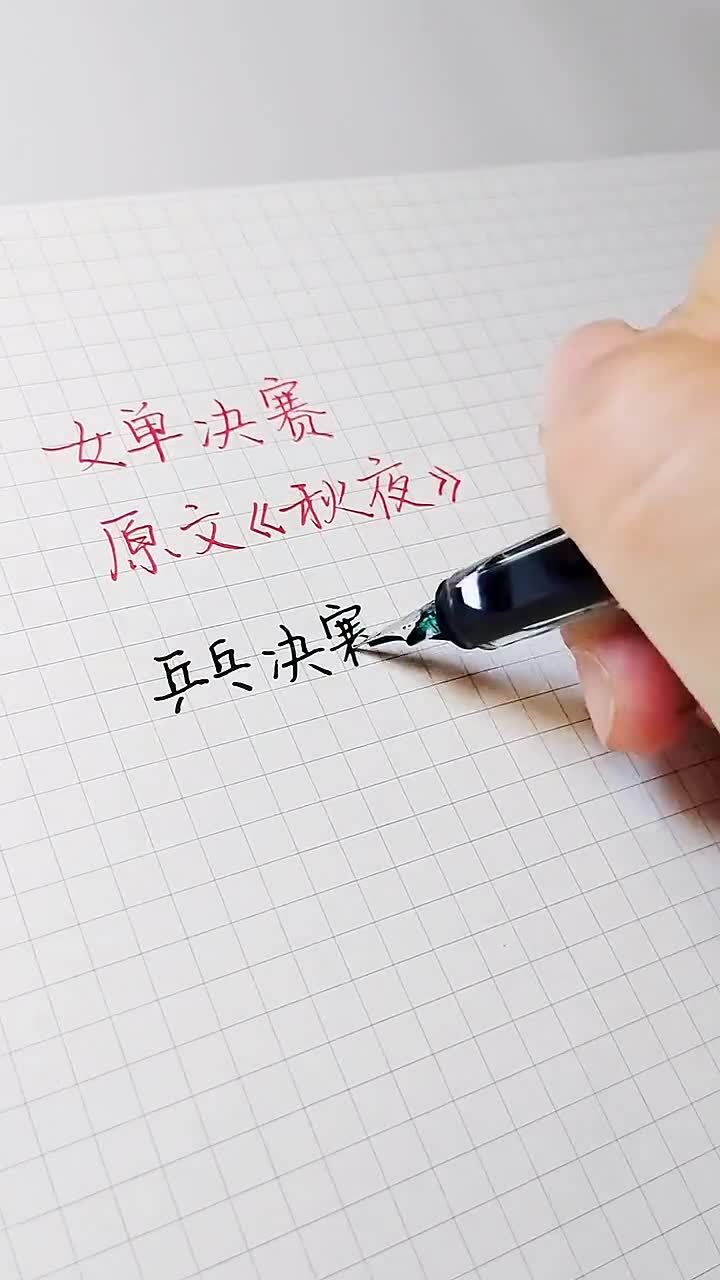 女单决赛
原文《秋夜》
乒乓决赛